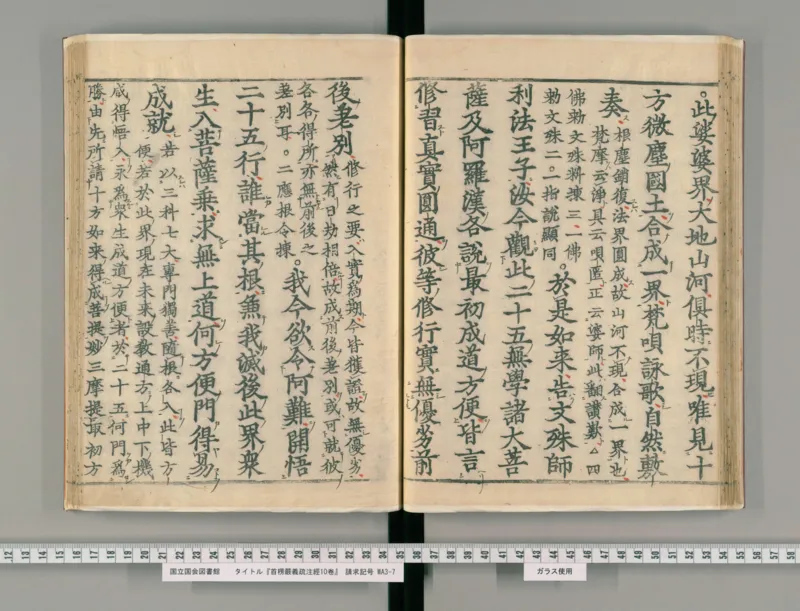 。此娑婆界大地山河俱時不現唯見十
方微塵國土合成一界梵唄詠歌自然敷
奏 根塵鎖復法界圓成故山河不現合成一界也
梵摩云淨具云唄匿正云婆師此翻讃歎△四
佛勅文殊料揀三一佛
勅文殊二。一指說顯同 。於是如來告文殊師
利法王子汝今觀此二十五無學諸大菩
薩及阿羅漢各說最初成道方便皆言
修習真實圓通彼等修行實無優劣前
後差別 修行之要入實爲期今皆獲證故無優劣
然有日劫相倍故成前後差別或可就彼
各各得所亦無前後之
差別耳。二應根令揀 。我今欲令阿難開悟
二十五行誰當其根兼我滅後此界衆
生入菩薩乘求無上道何方便門得易
成就 若以三科七大專門獨善隨根各入此皆方
便若於此界現在未來設教通方上中下機
咸得悟入永爲衆生成道方便者於二十五何門爲
勝由先所請十方如來得成菩提妙三摩提最初方
12 13 14 15 16 17 18 19 20 21 22 23 24 25 26 27 28 29 30 31 32 33 34 35 36 37 38 39 40 41 42 43 44 45 46 47 48 49 50 51 52 53 54 55 56 57 58
国立国会図書館 タイトル『首楞嚴義疏注經10巻』 請求記号 WA3-7
ガラス使用